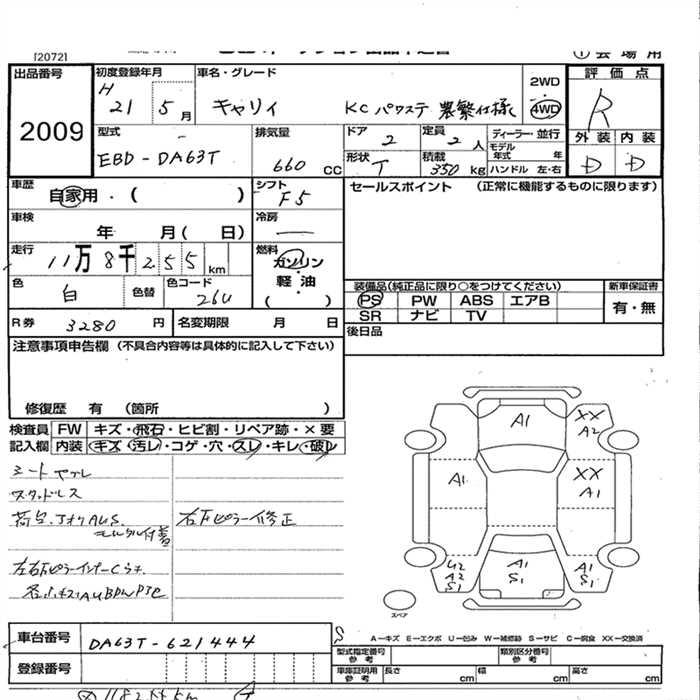 [2072]
① 会場用
出品番号
2009
初度登録年月
H 21 5月
車名・グレード
キャリィ KC パワステ 農繁仕様
2WD
4WD
評価点
R
型式
EBD-DA63T
排気量
660 CC
ドア
2
定員
2 人
ディーラー・並行
モデル年式 年
外装 内装
D D
形状
T
積載
350 kg
ハンドル 左・右
車歴
自家用・( )
シフト
F5
セールスポイント (正常に機能するものに限ります)
車検
年 月( 日)
冷房
走行
11万8千255 km
燃料
ガソリン
軽油
( )
色
白
色替
色コード
26U
装備品(純正品に限り○をつけてください)
新車保証書
PS PW ABS エアB
有・無
SR ナビ TV
R券 3280 円
名変期限 月 日
後日品
注意事項申告欄 (不具合内容等は具体的に記入して下さい)
修復歴 有 (箇所 )
検査員 FW キズ・飛石・ヒビ割・リペア跡・×要
記入欄 内装 キズ・汚レ・コゲ・穴・スレ・キレ・破レ
シートヤブレ
スタッドレス
右下ピラー修正
A1
XX
A2
A1
XX
A1
U2
A2
S1
A1
S1
A1
S1
スペア
車台番号 DA63T-621444
登録番号
S
A-キズ E-エクボ U-凹み W-補修跡 S-サビ C-腐食 XX-交換済
型式指定番号 参考
類別区分番号 参考
車庫証明用 参考 長さ cm 幅 cm 高さ cm